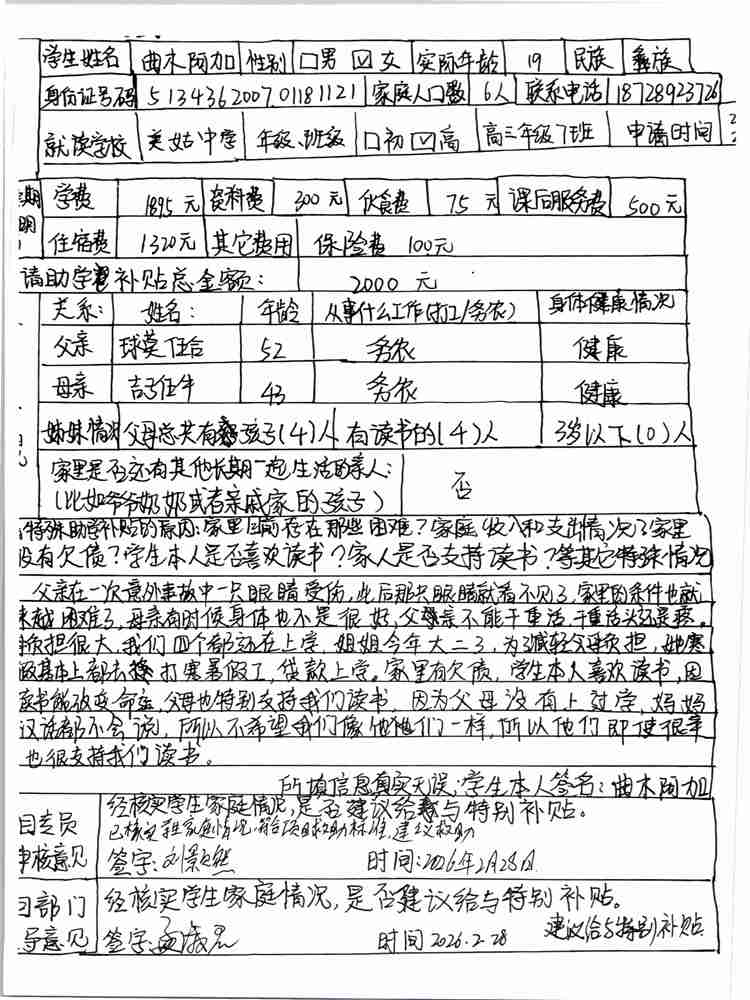 学生姓名 曲木阿加 性别 □男 ☑女 实际年龄 19 民族 彝族
身份证号码 513436200701181121 家庭人口数 6人 联系电话 18728923726
就读学校 美姑中学 年级、班级 □初 ☑高 高三年级7班 申请时间 2
期 学费 1895元 资料费 300元 伙食费 75元 课后服务费 500元
明 住宿费 1320元 其它费用 保险费 100元
请助学补贴总金额: 2000元
关系: 姓名: 年龄 从事什么工作(打工/务农) 身体健康情况
父亲 球莫伍合 52 务农 健康
母亲 吉子伍牛 43 务农 健康
姊妹情况 父母总共有孩子(4)人 有读书的(4)人 3岁以下(0)人
家里是否还有其他长期一起生活的亲人:
(比如爷爷奶奶或者亲戚家的孩子) 否
特殊助学补贴的原因:家里目前存在那些困难?家庭收入和支出情况?家里
没有欠债?学生本人是否喜欢读书?家人是否支持读书?等其它特殊情况
父亲在一次意外事故中一只眼睛受伤,此后那只眼睛就看不见了,家里的条件也就
来越困难了,母亲有时候身体也不是很好,父母亲不能干重活,干重活头还是疼。
负担很大,我们四个都还在上学,姐姐今年大二了,为了减轻父母负担,她寒
假基本上都去打寒暑假工,贷款上学。家里有欠债,学生本人喜欢读书,因
读书能改变命运,父母也特别支持我们读书,因为父母没有上过学,妈妈
汉话都不会说,所以不希望我们像他他们一样,所以他们即使很辛
也很支持我们读书。
所填信息真实无误,学生本人签名:曲木阿加
目专员 经核实学生家庭情况,是否建议给与特别补贴。
已核实 家庭情况,符合项目救助标准,建议救助
审核意见 签字:刘景然 时间:2026年2月28日
部门 经核实学生家庭情况,是否建议给与特别补贴。
建议给与特别补贴
导意见 签字: 时间 2026.2.28